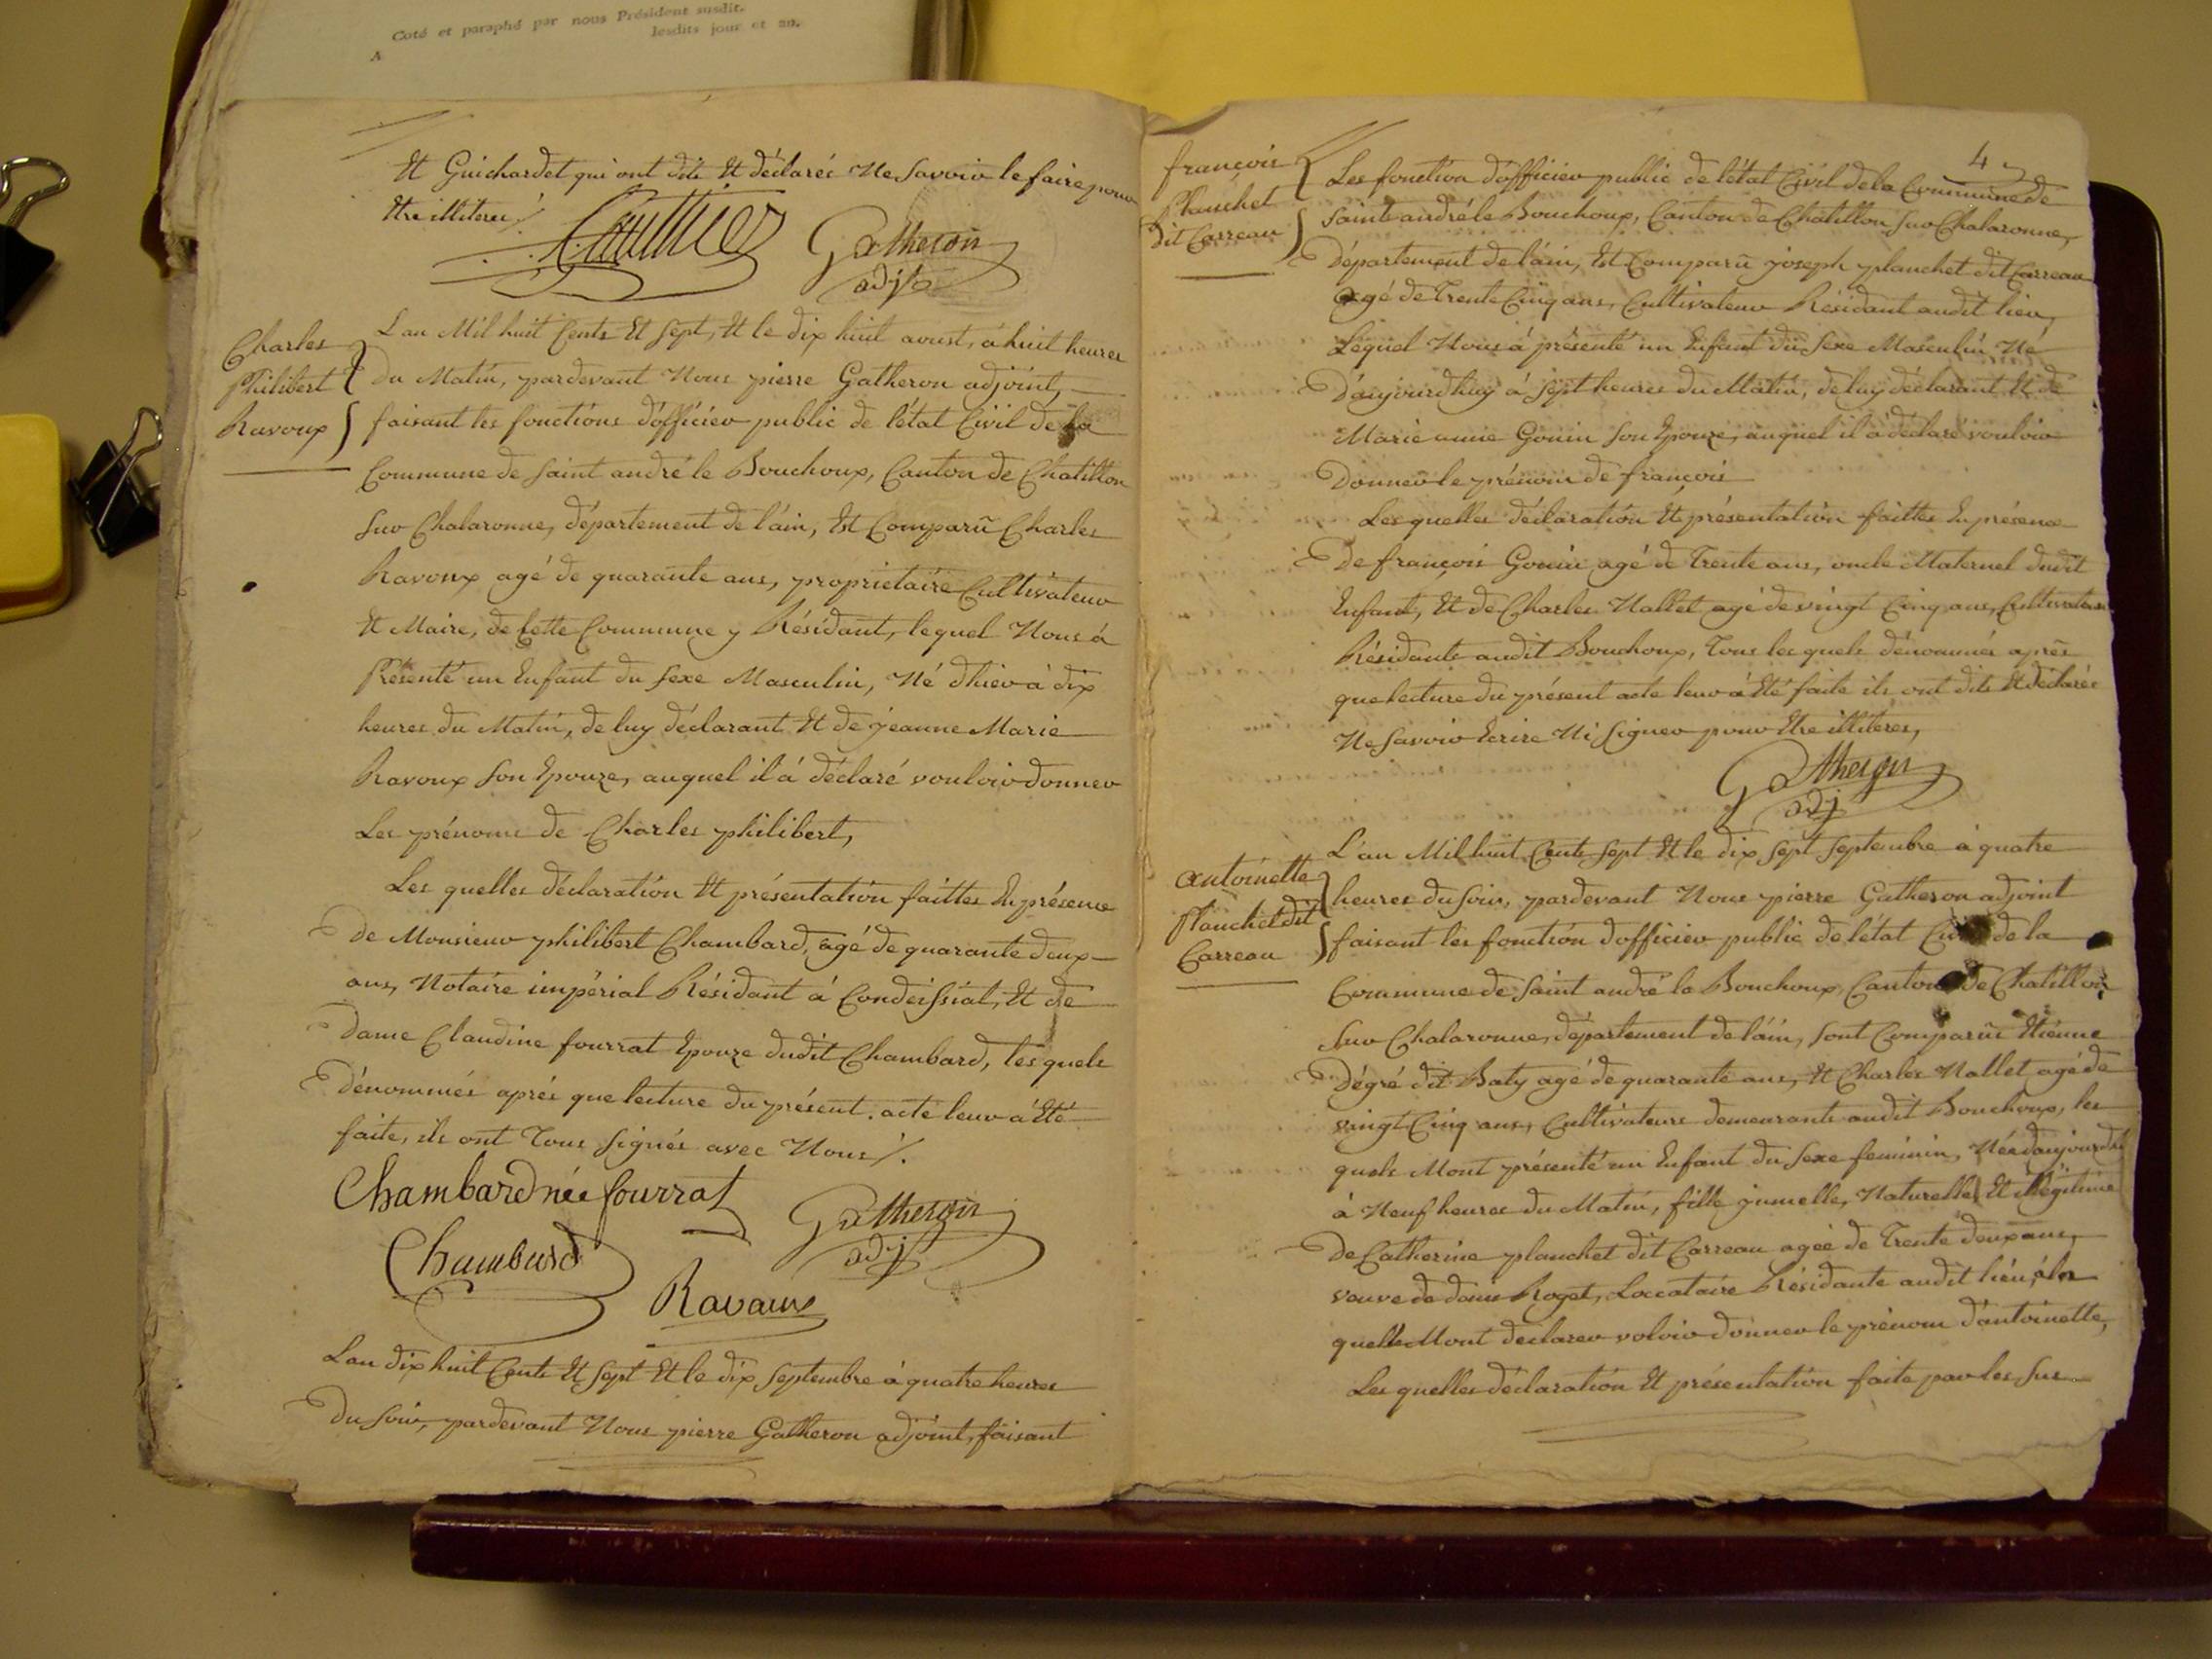 Coté et paraphé par nous Président susdit.
A lesdits jour et an.
Et Guichardet qui ont dits Et déclarés Ne Savoir le faire pour
Etre illiteres ./.
Gauthier Gatheron
adjt
Charles
Philibert
Ravoux
Lan Mil huit Cents Et Sept, Et le dix huit aoust, à huit heures
Du Matin, pardevant Nous pierre Gatheron adjoint,
faisant les fonctions d'officier public de l'état Civil de la
Commune de Saint andré le Bouchoux, Canton de Chatillon
Sur Chalaronne, département de l'ain, Est Comparû Charles
Ravoux agé de quarante ans, proprietaire Cultivateur
Et Maire, de Cette Commune y Résidant, lequel Nous á
Présenté un Enfant du Sexe Masculin, Né d'hier à dix
heures du Matin, de luy déclarant Et de jeanne Marie
Ravoux Son Epouze, auquel il á déclaré vouloir donner
Les prénoms de Charles philibert,
Les quelles déclaration Et présentation faittes En présence
De Monsieur philibert Chambard, agé de quarante deux
ans, Notaire impérial Résidant à Condeissiat, Et de
Dame Claudine fourrat Epouze dudit Chambard, les quels
Dénommés aprés que lecture du présent acte leur á Eté
faite, ils ont Tous Signés avec Nous ./.
Chambard née fourrat Gatheron
adjt
Chambard
Ravoux
Lan dix huit Cents Et Sept Et le dix Septembre à quatre heures
Du Soir, pardevant Nous pierre Gatheron adjoint, faisant
4
françois
Planchet
dit Carreau
Les fonction d'officier public de l'état Civil de la Commune de
Saint andré le Bouchoux, Canton de Chatillon Sur Chalaronne,
Département de l'ain, Est Comparû joseph planchet dit Carreau
agé de Trente Cinq ans, Cultivateur Résidant audit lieu,
Lequel Nous á présenté un Enfant du Sexe Masculin Né
D'aujourdhuy à Sept heures du Matin, de luy déclarant Et de
Marie anne Gonin Son Epouze, auquel il á déclaré vouloir
Donner le prénom de françois
Les quelles déclaration Et présentation faittes En présence
De françois Gonin agé de Trente ans, oncle Maternel dudit
Enfant, Et de Charles Nallet agé de vingt Cinq ans, Cultivateurs
Résidants audit Bouchoux, Tous les quels dénommés aprés
que lecture du présent acte leur á Eté faite ils ont dits Et déclarés
Ne Savoir Ecrire Ni Signer pour Etre illiteres,
Gatheron
adj
antoinette
Planchet dit
Carreau
L'an Mil huit Cents Sept Et le dix Sept Septembre à quatre
heures du Soir, pardevant Nous pierre Gatheron adjoint
faisant les fonction d'officier public de l'état Civil de la
Commune de Saint andré le Bouchoux, Canton de Chatillon
Sur Chalaronne, département de l'ain, Sont Comparûs Etienne
Dégré dit Baty agé de quarante ans, Et Charles Nallet agé de
vingt Cinq ans, Cultivateurs demeurants audit Bouchoux, les
quels Mont présenté un Enfant du Sexe feminin, Née d'aujourdhuy
à Neuf heures du Matin, fille jumelle, Naturelle Et illégitime
De Catherine planchet dit Carreau agée de Trente deux ans,
veuve de Roget, Loccataire Résidante audit lieu, à la
quelle Mont déclarer voloir donner le prénom d'antoinette,
Les quelles déclaration Et présentation faite par les Sus